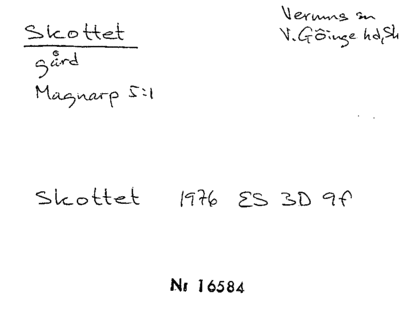 Skottet
Verums sn
V. Göinge hd, Sk
gård
Magnarp 5:1
Skottet 1976 ES 3D 9f
Nr 16584